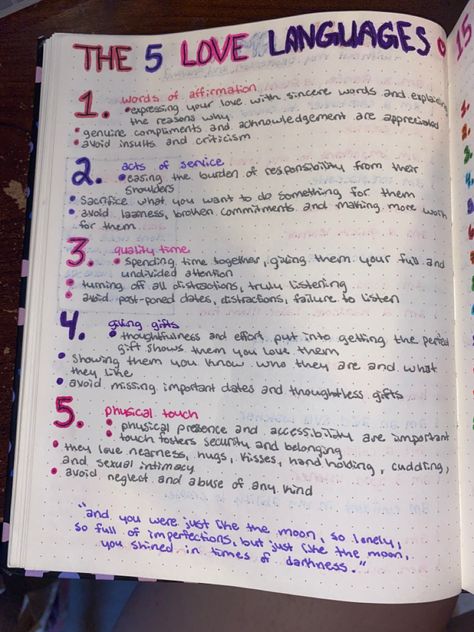 THE 5 LOVE LANGUAGES
1. words of affirmation
expressing your love with sincere words and explaining
the reasons why
genuine compliments and acknowledgement are appreciated
avoid insults and criticism
2. acts of service
easing the burden of responsibility from their
shoulders
sacrifice what you want to do something for them
avoid laziness, broken commitments and making more work
for them
3. quality time
spending time together, giving them your full and
undivided attention
turning off all distractions, truly listening
avoid post-poned dates, distractions, failure to listen
4. giving gifts
thoughtfulness and effort put into getting the perfect
gift shows them you love them
showing them you know who they are and what
they like
avoid missing important dates and thoughtless gifts
5. physical touch
physical presence and accessibility are important
touch fosters security and belonging
they love nearness, hugs, kisses, hand holding, cuddling,
and sexual intimacy
avoid neglect and abuse of any kind
"and you were just like the moon, so lonely,
so full of imperfections, but just like the moon,
you shined in times of darkness."
15